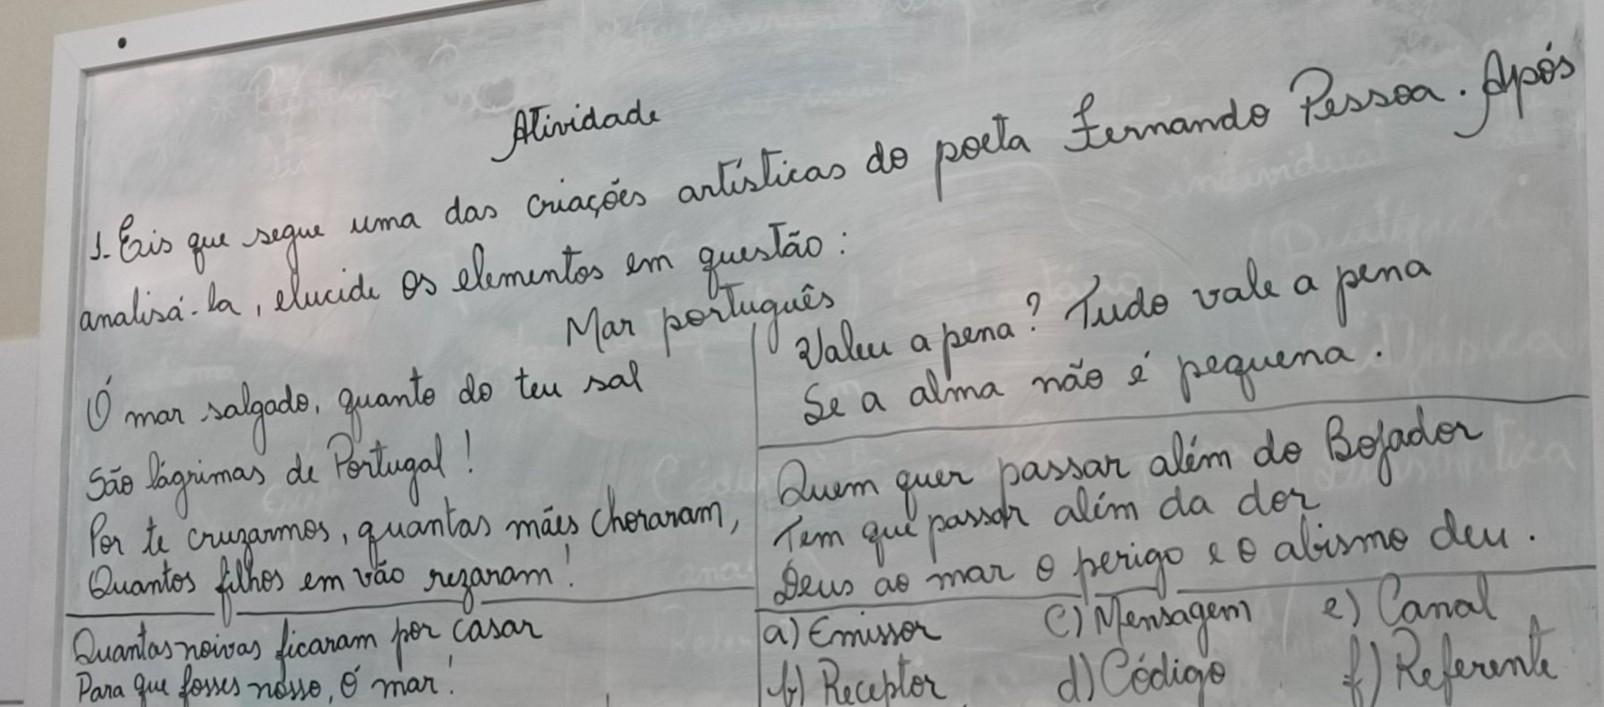 Atividade
1- Eis que segue uma das criações artísticas do poeta Fernando Pessoa. Após
analisá-la, elucide os elementos em questão:
Mar português
Ó mar salgado, quanto do teu sal
São lágrimas de Portugal!
Por te cruzarmos, quantas mães choraram,
Quantos filhos em vão rezaram!
Quantas noivas ficaram por casar
Para que fosses nosso, ó mar!
Valeu a pena? Tudo vale a pena
Se a alma não é pequena.
Quem quer passar além do Bojador
Tem que passar além da dor
Deus ao mar o perigo e o abismo deu.
a) Emissor c) Mensagem e) Canal
b) Receptor d) Código f) Referente